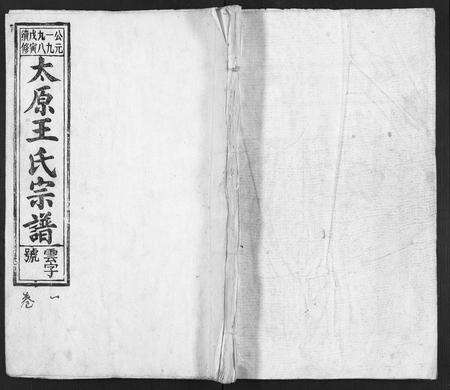 公元
一九
九八
戊寅
續修
太原王氏宗譜
雲字
號
卷一